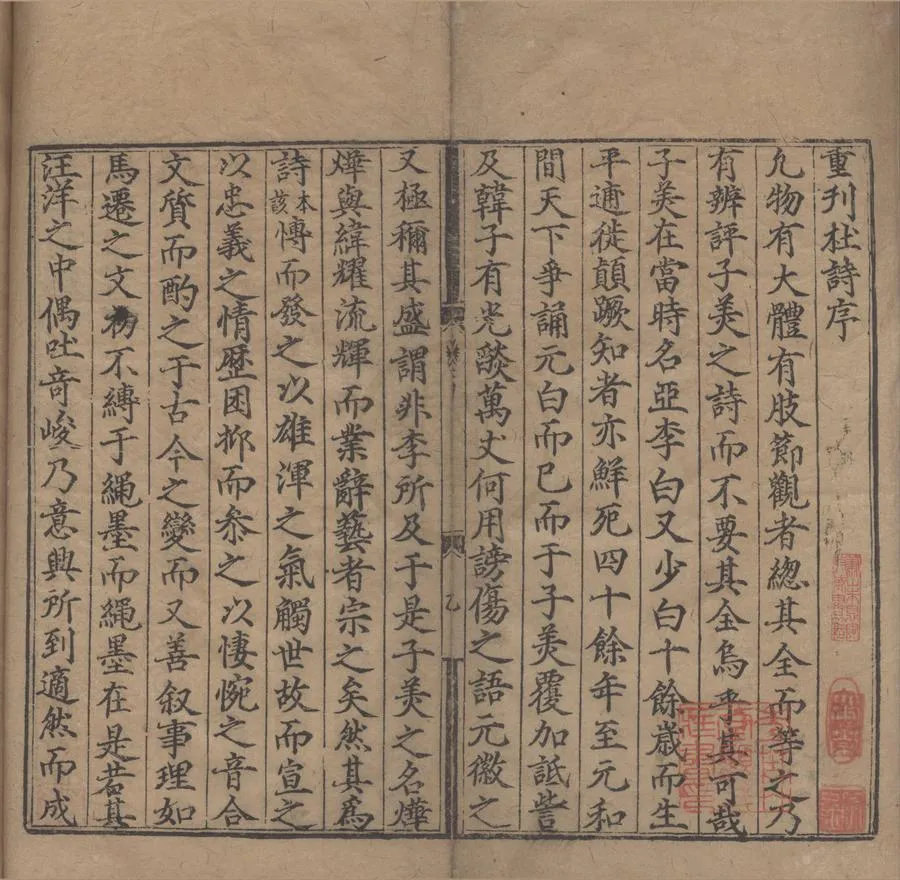 重刊杜詩序
凢物有大體有肢節觀者總其全而等之乃
有辨評子美之詩而不要其全烏乎其可哉
子美在當時名亞李白又少白十餘歳而生
平遁徙顛蹶知者亦鮮死四十餘年至元和
間天下爭誦元白而已而于子美覆加詆訾
及韓子有光燄萬丈何用謗傷之語元微之
又極稱其盛謂非李所及于是子美之名燁
燁與緯耀流輝而業辭藝者宗之矣然其爲
詩本該慱而發之以雄渾之氣觸世故而宣之
以忠義之情歴困抑而叅之以悽惋之音合
文質而酌之于古今之變而又善叙事理如
馬遷之文初不縛于繩墨而繩墨在是若其
汪洋之中偶吐奇峻乃意興所到適然而成
乙